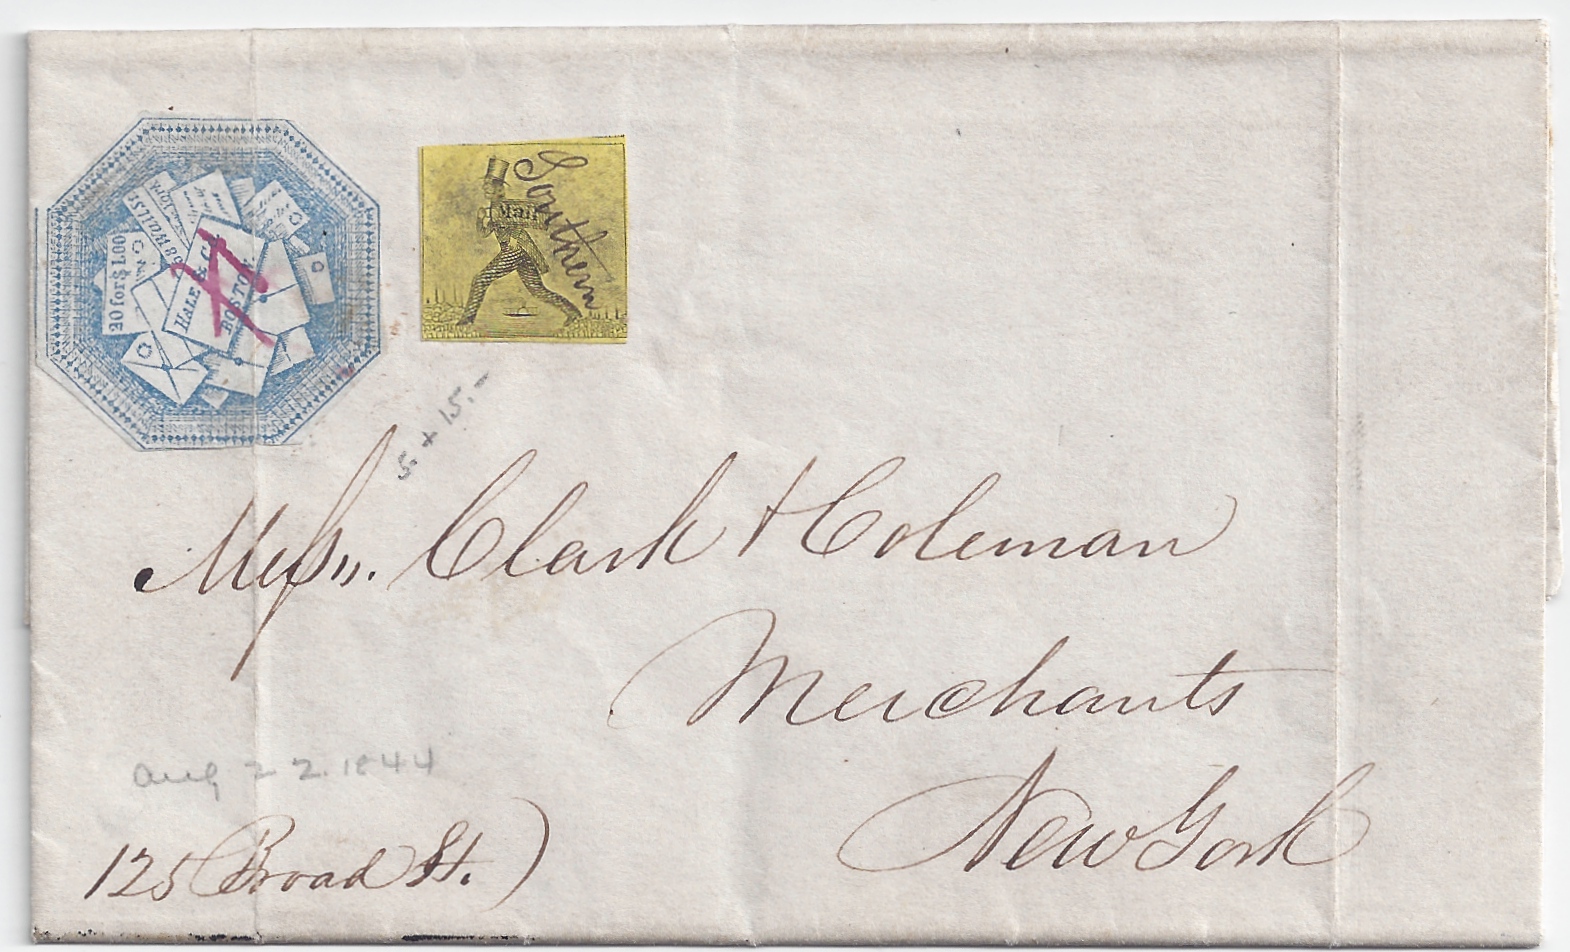 98 Wall St
New York
20 for $1.00
HALE & Co.
BOSTON
X
Mail
Southern
5 + 15.-
Messrs. Clark & Coleman
Merchants
New York
Aug 22. 1844
125 Broad St. )